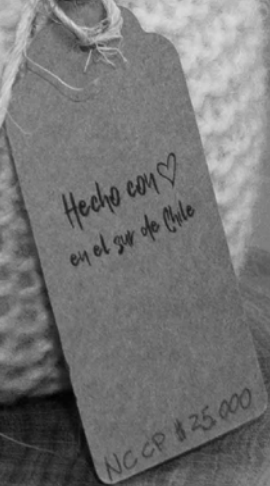 Hecho con ♡
en el sur de Chile
NCCP $25.000